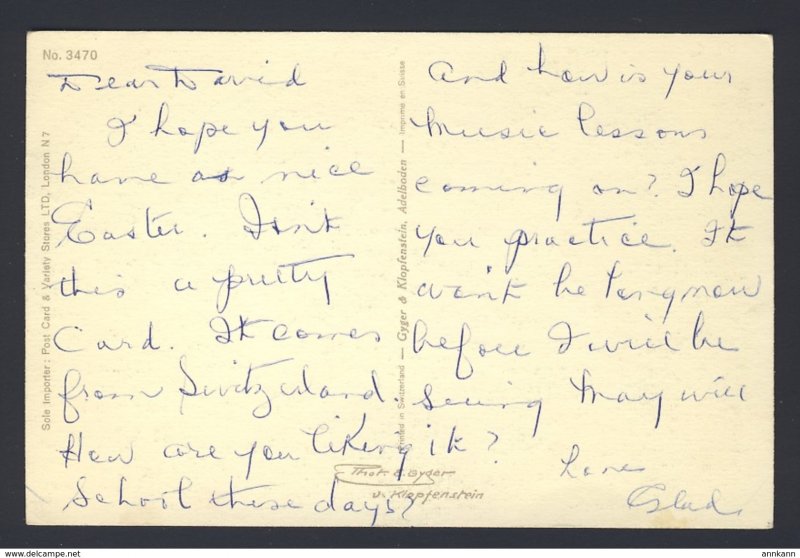 No. 3470
Dear David
I hope you
have a nice
Easter. Isn't
this a pretty
Card. It comes
from Switzerland.
How are you liking it?
School these days?
And how is your
Music lessons
coming on? I hope
you practice. It
won't be long now
before I will be
seeing May will
Love
Glad.
Sole Importer: Post Card & Variety Stores LTD, London N 7
Printed in Switzerland — Gyger & Klopfenstein, Adelboden — Imprimé en Suisse
Phot. E. Gyger
u. Klopfenstein
annkann
delcampe.net